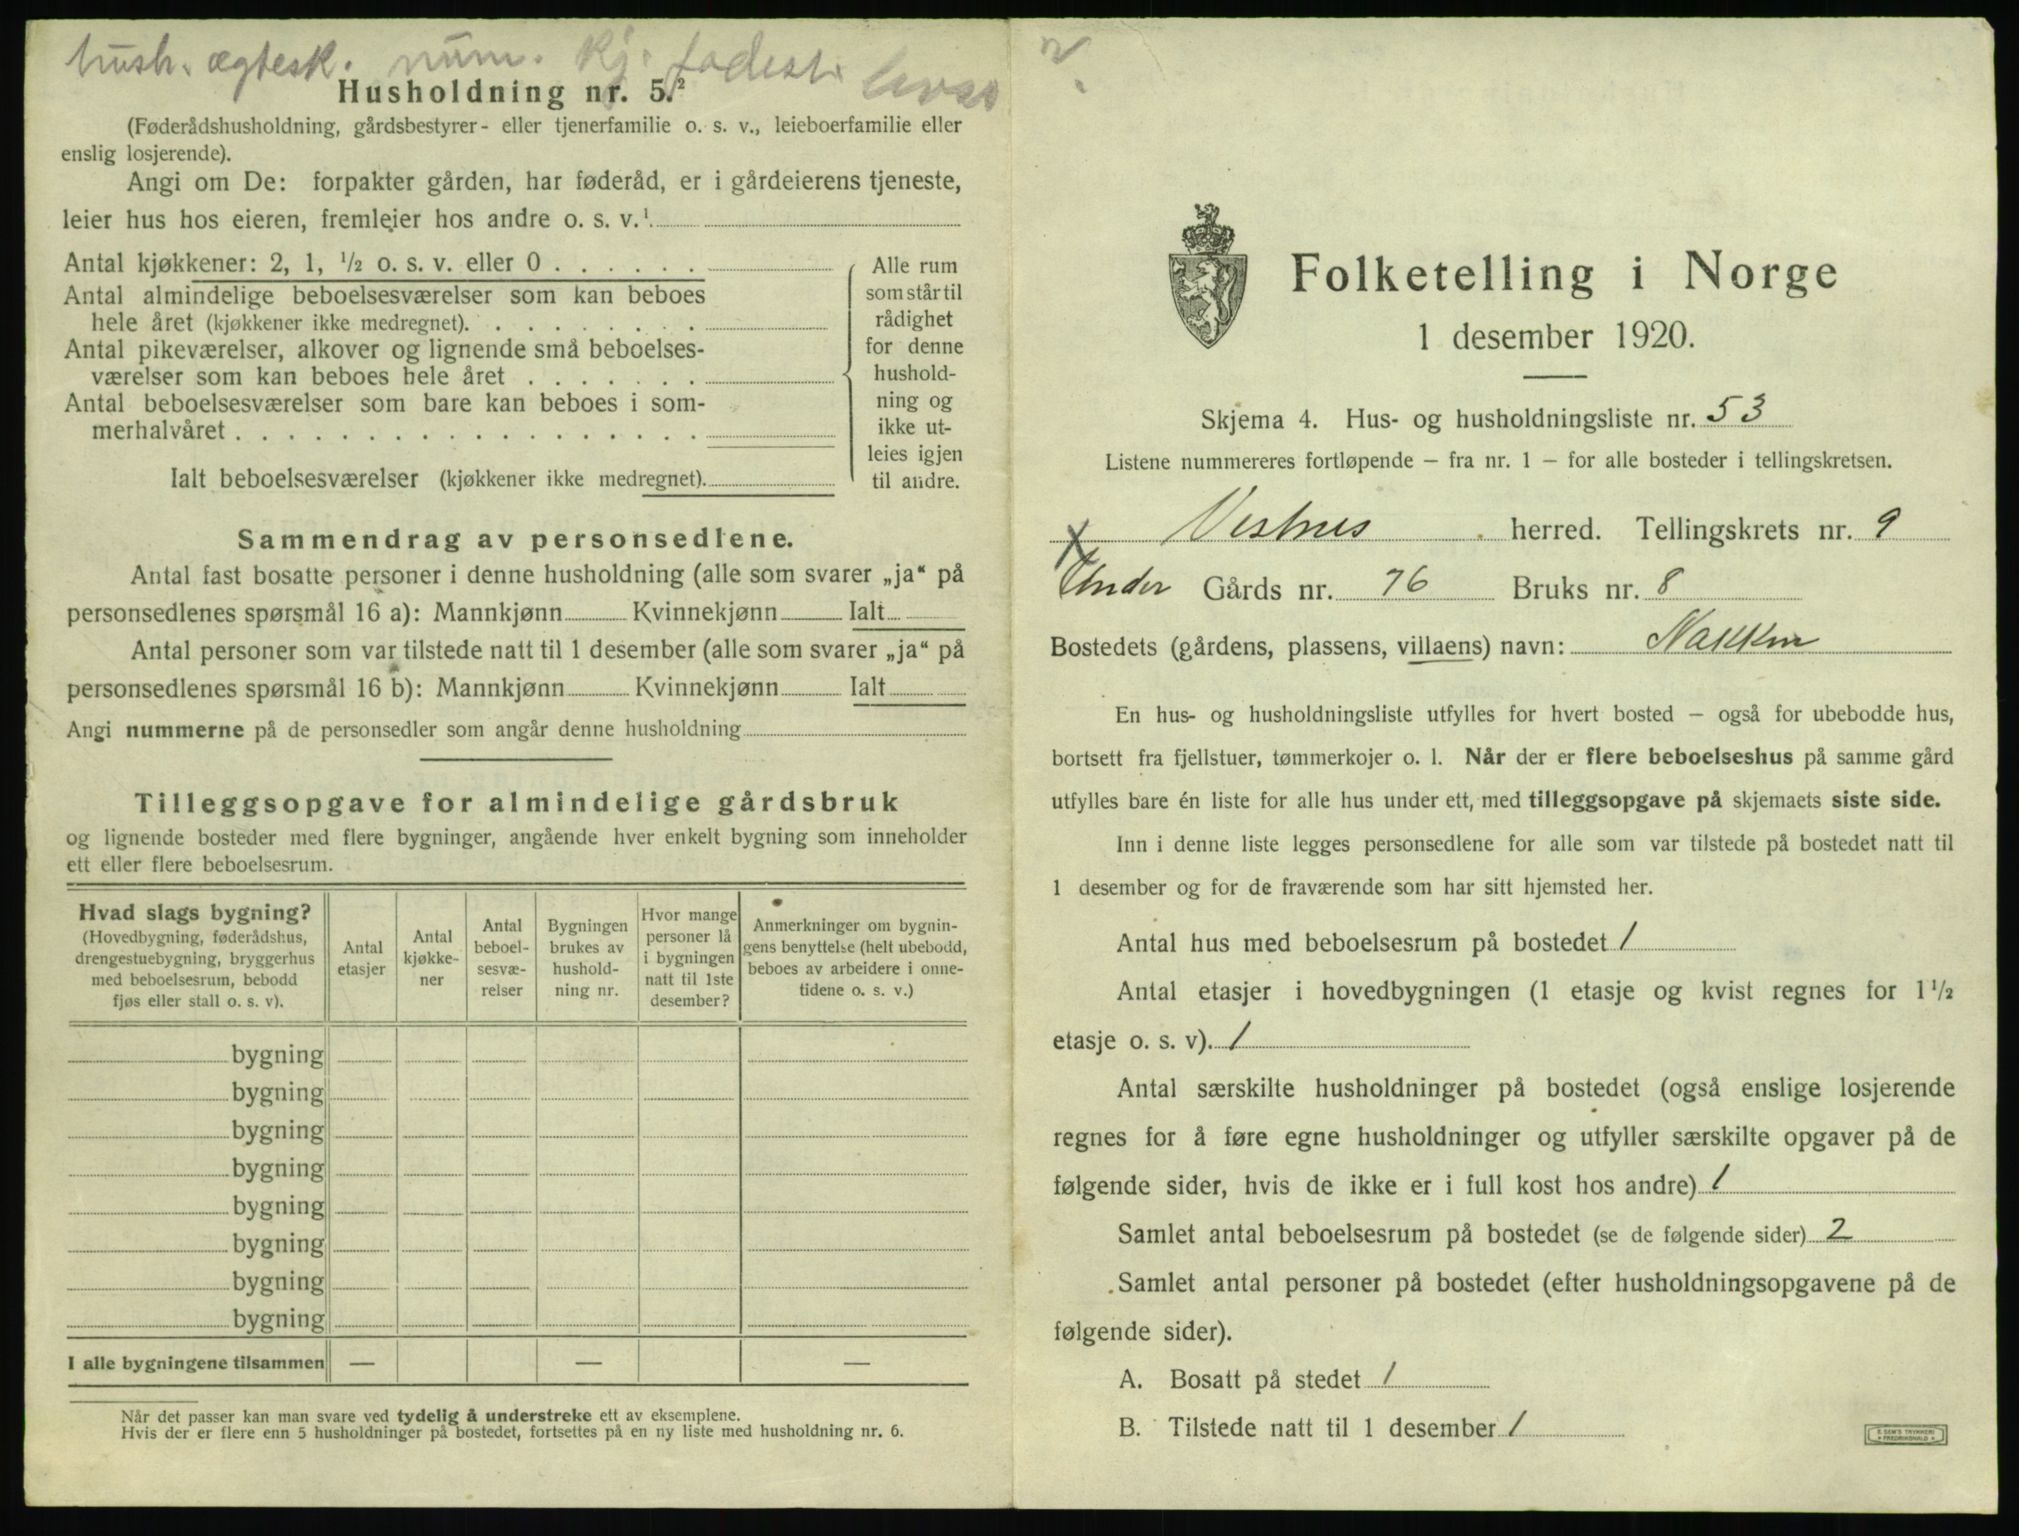 hush. ægtesk. num. kj. fødest.
Husholdning nr. 5.²
(Føderådshusholdning, gårdsbestyrer- eller tjenerfamilie o. s. v., leieboerfamilie eller
enslig losjerende).
Angi om De: forpakter gården, har føderåd, er i gårdeierens tjeneste,
leier hus hos eieren, fremleier hos andre o. s. v.¹
Antal kjøkkener: 2, 1, ½ o. s. v. eller 0 . . . . . .
Antal almindelige beboelsesværelser som kan beboes
hele året (kjøkkener ikke medregnet). . . . . . . . .
Antal pikeværelser, alkover og lignende små beboelses-
værelser som kan beboes hele året . . . . . . .
Antal beboelsesværelser som bare kan beboes i som-
merhalvåret . . . . . . . . . . . . . . . . . .
Ialt beboelsesværelser (kjøkkener ikke medregnet).
Alle rum
som står til
rådighet
for denne
hushold-
ning og
ikke ut-
leies igjen
til andre.
Sammendrag av personsedlene.
Antal fast bosatte personer i denne husholdning (alle som svarer „ja“ på
personsedlenes spørsmål 16 a): Mannkjønn Kvinnekjønn Ialt
Antal personer som var tilstede natt til 1 desember (alle som svarer „ja“ på
personsedlenes spørsmål 16 b): Mannkjønn Kvinnekjønn Ialt
Angi nummerne på de personsedler som angår denne husholdning
Tilleggsopgave for almindelige gårdsbruk
og lignende bosteder med flere bygninger, angående hver enkelt bygning som inneholder
ett eller flere beboelsesrum.
Hvad slags bygning?
(Hovedbygning, føderådshus,
drengestuebygning, bryggerhus
med beboelsesrum, bebodd
fjøs eller stall o. s. v).
Antal
etasjer
Antal
kjøkke-
ner
Antal
beboel-
sesvæ-
relser
Bygningen
brukes av
hushold-
ning nr.
Hvor mange
personer lå
i bygningen
natt til 1ste
desember?
Anmerkninger om bygnin-
gens benyttelse (helt ubebodd,
beboes av arbeidere i onne-
tidene o. s. v.)
bygning
bygning
bygning
bygning
bygning
bygning
bygning
bygning
I alle bygningene tilsammen — — —
Når det passer kan man svare ved tydelig å understreke ett av eksemplene.
Hvis der er flere enn 5 husholdninger på bostedet, fortsettes på en ny liste med husholdning nr. 6.
Folketelling i Norge
1 desember 1920.
Skjema 4. Hus- og husholdningsliste nr. 53
Listene nummereres fortløpende – fra nr. 1 – for alle bosteder i tellingskretsen.
X Vestnes herred. Tellingskrets nr. 9
Under Gårds nr. 76 Bruks nr. 8
Bostedets (gårdens, plassens, villaens) navn: Nakken
En hus- og husholdningsliste utfylles for hvert bosted – også for ubebodde hus,
bortsett fra fjellstuer, tømmerkojer o. l. Når der er flere beboelseshus på samme gård
utfylles bare én liste for alle hus under ett, med tilleggsopgave på skjemaets siste side.
Inn i denne liste legges personsedlene for alle som var tilstede på bostedet natt til
1 desember og for de fraværende som har sitt hjemsted her.
Antal hus med beboelsesrum på bostedet 1
Antal etasjer i hovedbygningen (1 etasje og kvist regnes for 1½
etasje o. s. v). 1
Antal særskilte husholdninger på bostedet (også enslige losjerende
regnes for å føre egne husholdninger og utfyller særskilte opgaver på de
følgende sider, hvis de ikke er i full kost hos andre) 1
Samlet antal beboelsesrum på bostedet (se de følgende sider) 2
Samlet antal personer på bostedet (efter husholdningsopgavene på de
følgende sider).
A. Bosatt på stedet 1
B. Tilstede natt til 1 desember 1
E. SEM'S TRYKKERI
FREDRIKSHALD